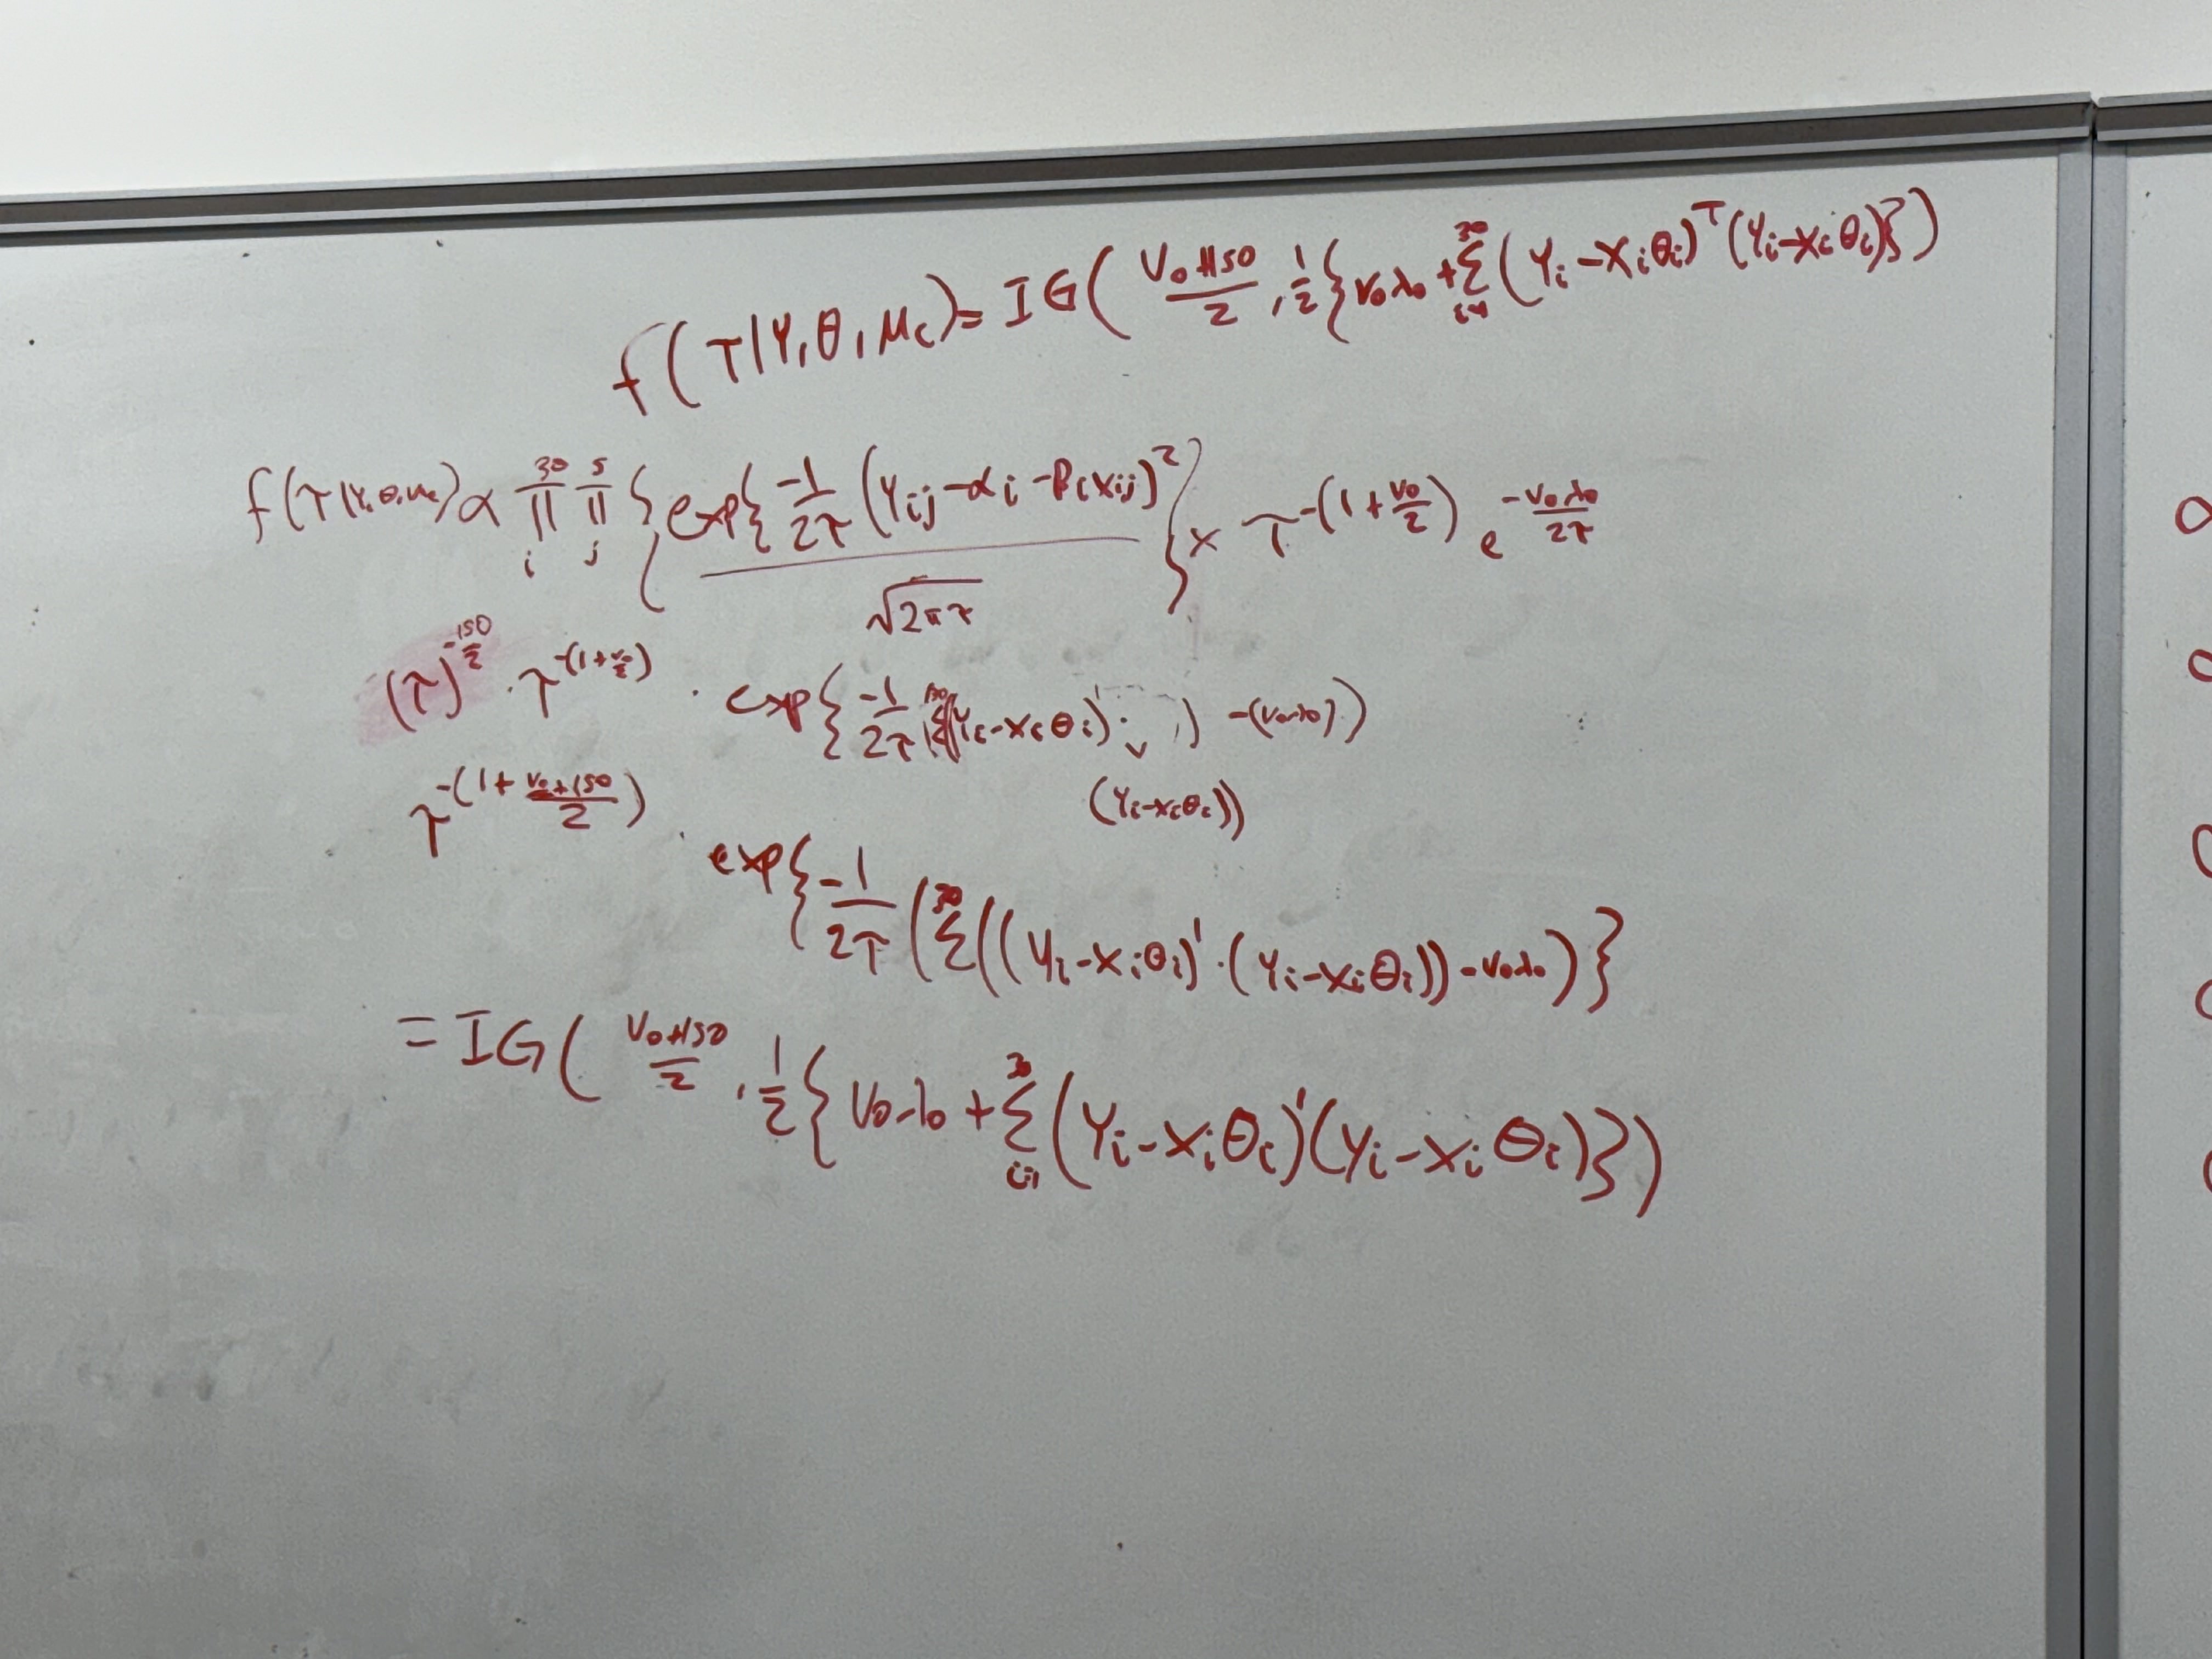 f(τ|Y,θ,μc) = IG( (v₀+150)/2 , 1/2 { v₀λ₀ + Σ_{i=1}^{30} (Yi - Xiθi)^T (Yi - Xiθi) } )
f(τ|Y,θ,μc) ∝ Π_i^{30} Π_j^{5} { exp{ -1/2τ (Yij - αi - βixij)² } / √2πτ } × τ^{-(1 + v₀/2)} e^{-v₀λ₀/2τ}
(τ)^{-150/2} · τ^{-(1 + v₀/2)} · exp{ -1/2τ ((Yi - Xiθi)' ) - (v₀λ₀) )
(Yi - Xiθi))
τ^{-(1 + (v₀+150)/2)} · exp{ -1/2τ ( Σ^{30} ((Yi - Xiθi)' · (Yi - Xiθi)) - v₀λ₀ ) }
= IG( (v₀+150)/2 , 1/2 { v₀λ₀ + Σ_{i=1}^{30} (Yi - Xiθi)' (Yi - Xiθi) } )